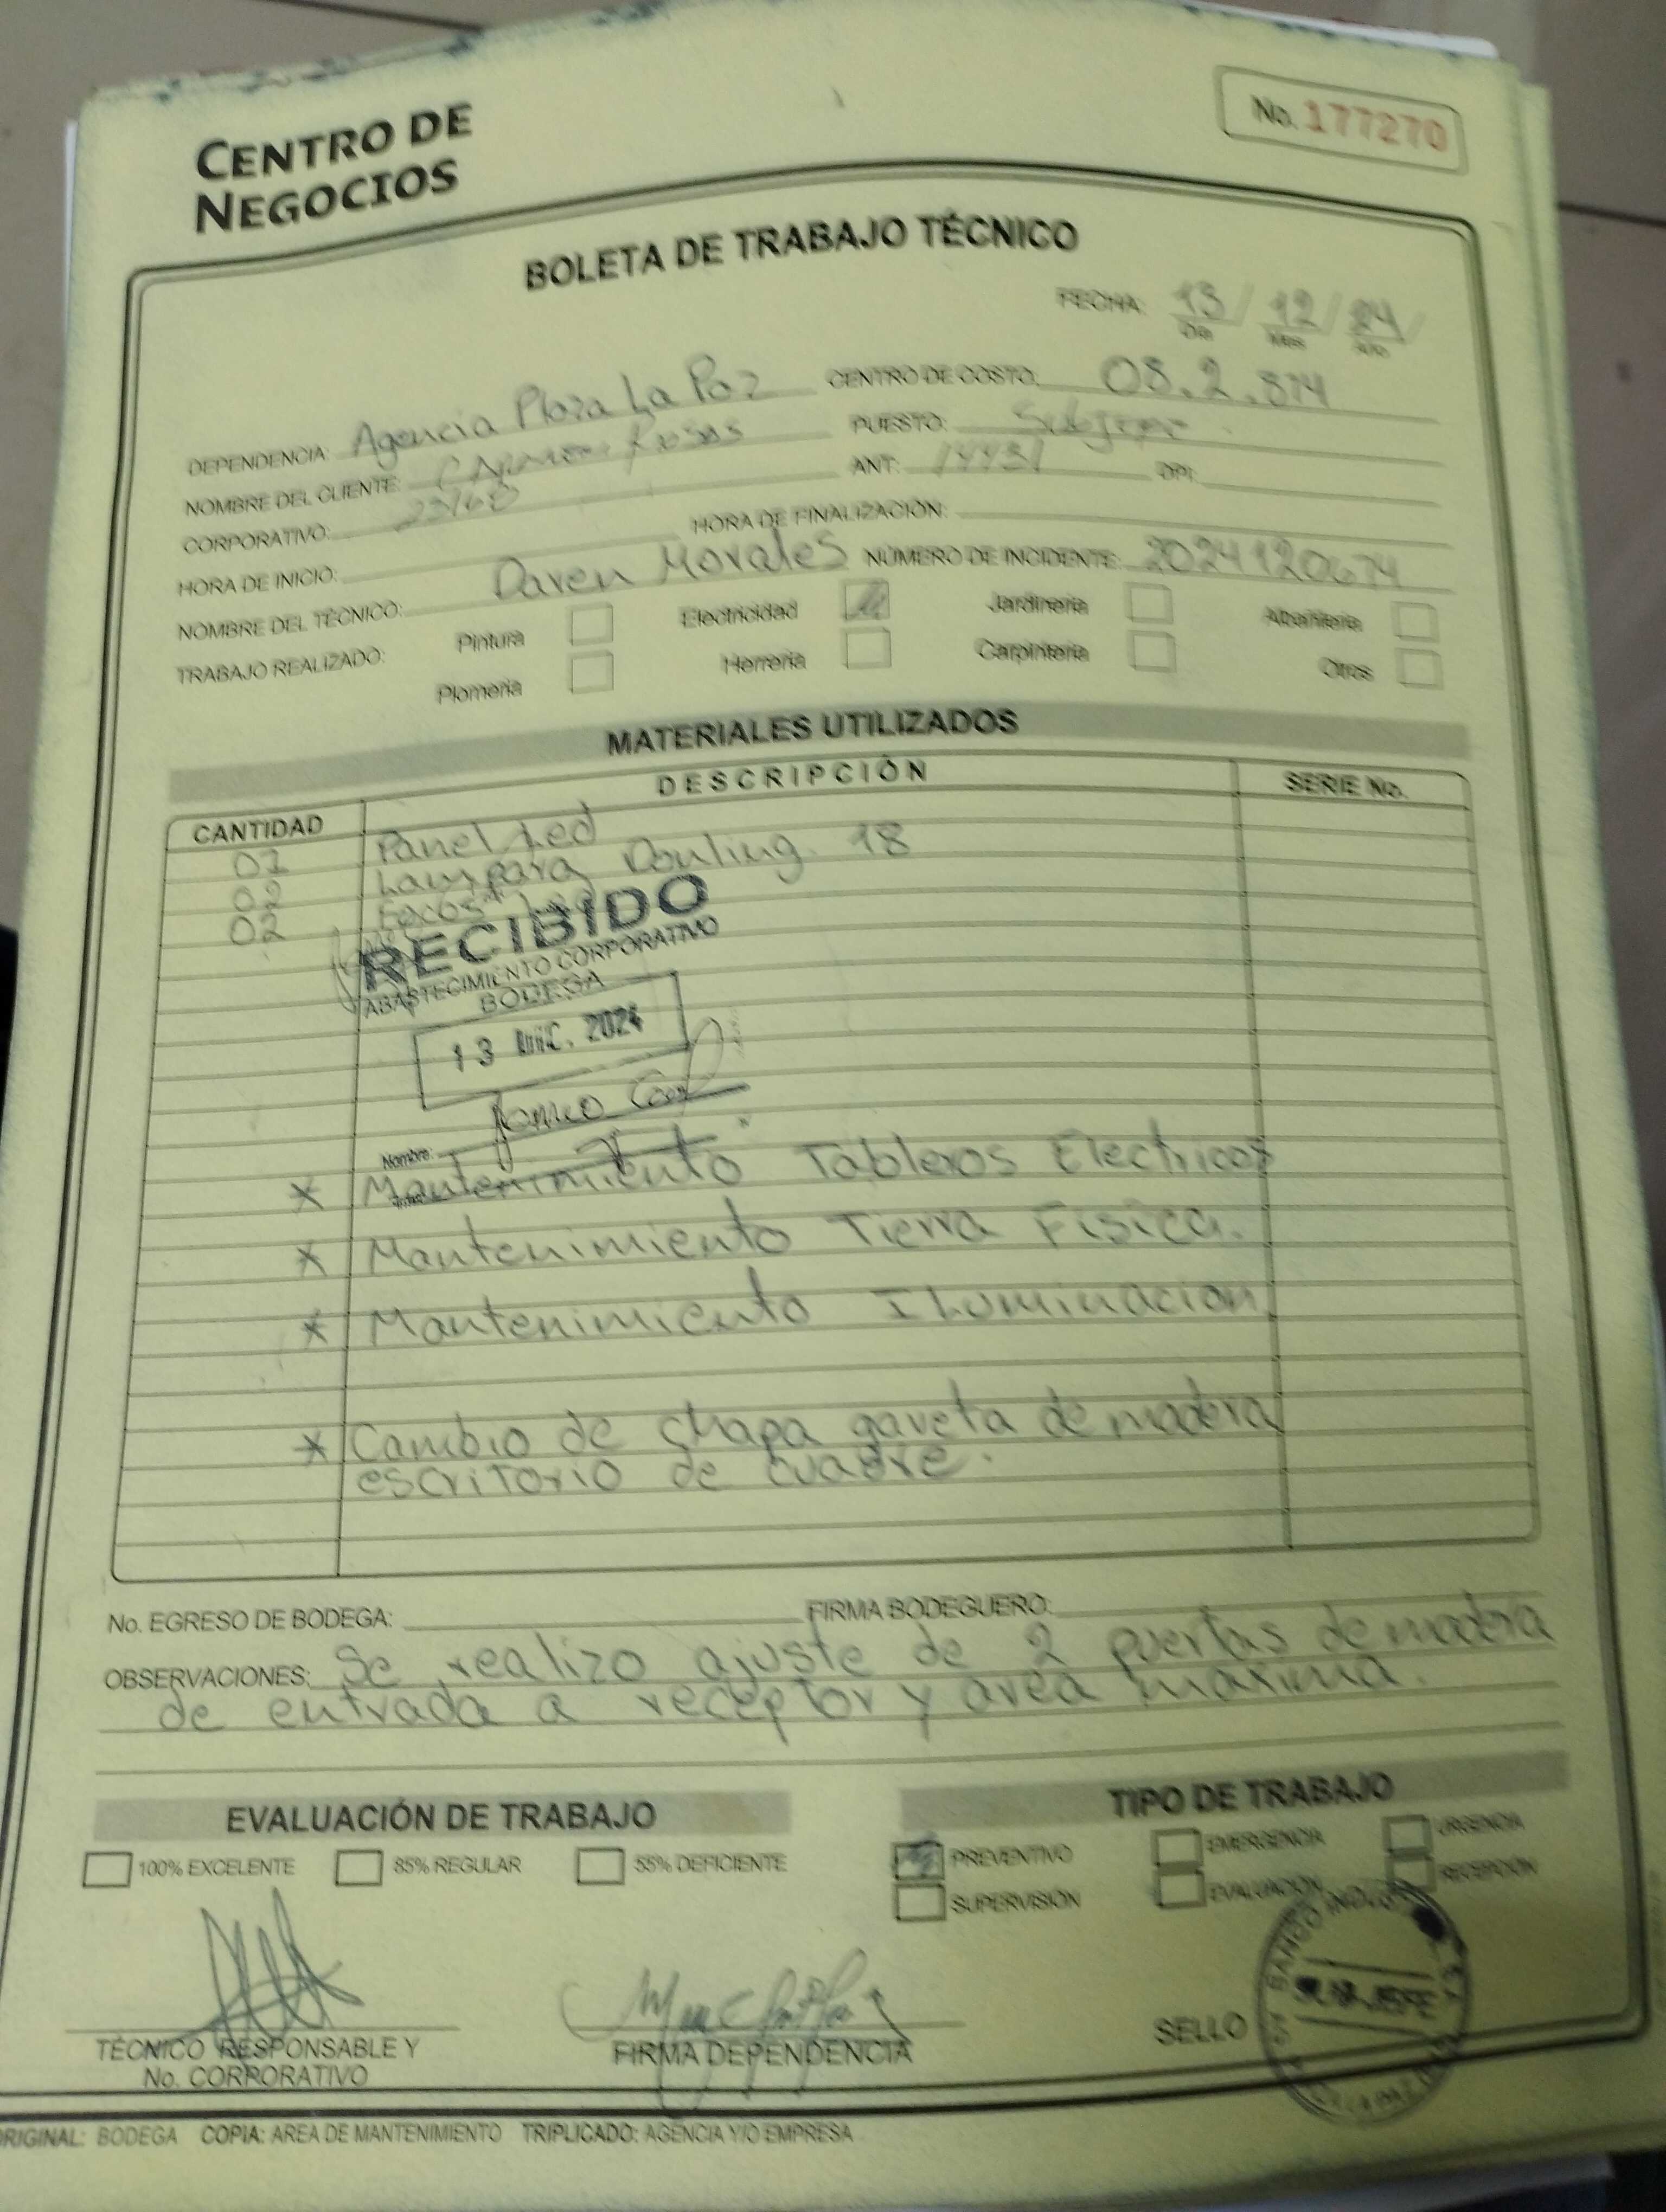 CENTRO DE
NEGOCIOS
No. 177270
BOLETA DE TRABAJO TÉCNICO
FECHA: 13 / 12 / 24 /
Día Mes Año
DEPENDENCIA: Agencia Plaza La Paz CENTRO DE COSTO: 08.2.874
NOMBRE DEL CLIENTE: Carmen Rosas PUESTO: Subjefe
CORPORATIVO: 23168 ANT: 14431 DPI:
HORA DE INICIO: HORA DE FINALIZACIÓN:
NOMBRE DEL TÉCNICO: Daren Morales NÚMERO DE INCIDENTE: 2024120674
TRABAJO REALIZADO: Pintura Electricidad Jardinería Albañilería
Plomería Herrería Carpintería Otros
MATERIALES UTILIZADOS
CANTIDAD DESCRIPCIÓN SERIE No.
01 Panel Led
02 Lampara Douling. 18
02 Focos Led
RECIBIDO
ABASTECIMIENTO CORPORATIVO
BODEGA
13 DIC. 2024
Nombre:
* Mantenimiento Tableros Electricos
* Mantenimiento Tierra Fisica.
* Mantenimiento Iluminacion
* Cambio de chapa gaveta de madera
escritorio de cuadre.
No. EGRESO DE BODEGA: FIRMA BODEGUERO:
OBSERVACIONES: Se realizo ajuste de 2 puertas de madera
de entrada a receptor y area maxima.
EVALUACIÓN DE TRABAJO
100% EXCELENTE 85% REGULAR 55% DEFICIENTE
TIPO DE TRABAJO
PREVENTIVO EMERGENCIA URGENCIA
SUPERVISIÓN EVALUACIÓN RECEPCIÓN
TÉCNICO RESPONSABLE Y
No. CORPORATIVO
FIRMA DEPENDENCIA
SELLO
BANCO INDUS
SUB-JEFE
LA PAZ
ORIGINAL: BODEGA COPIA: AREA DE MANTENIMIENTO TRIPLICADO: AGENCIA Y/O EMPRESA